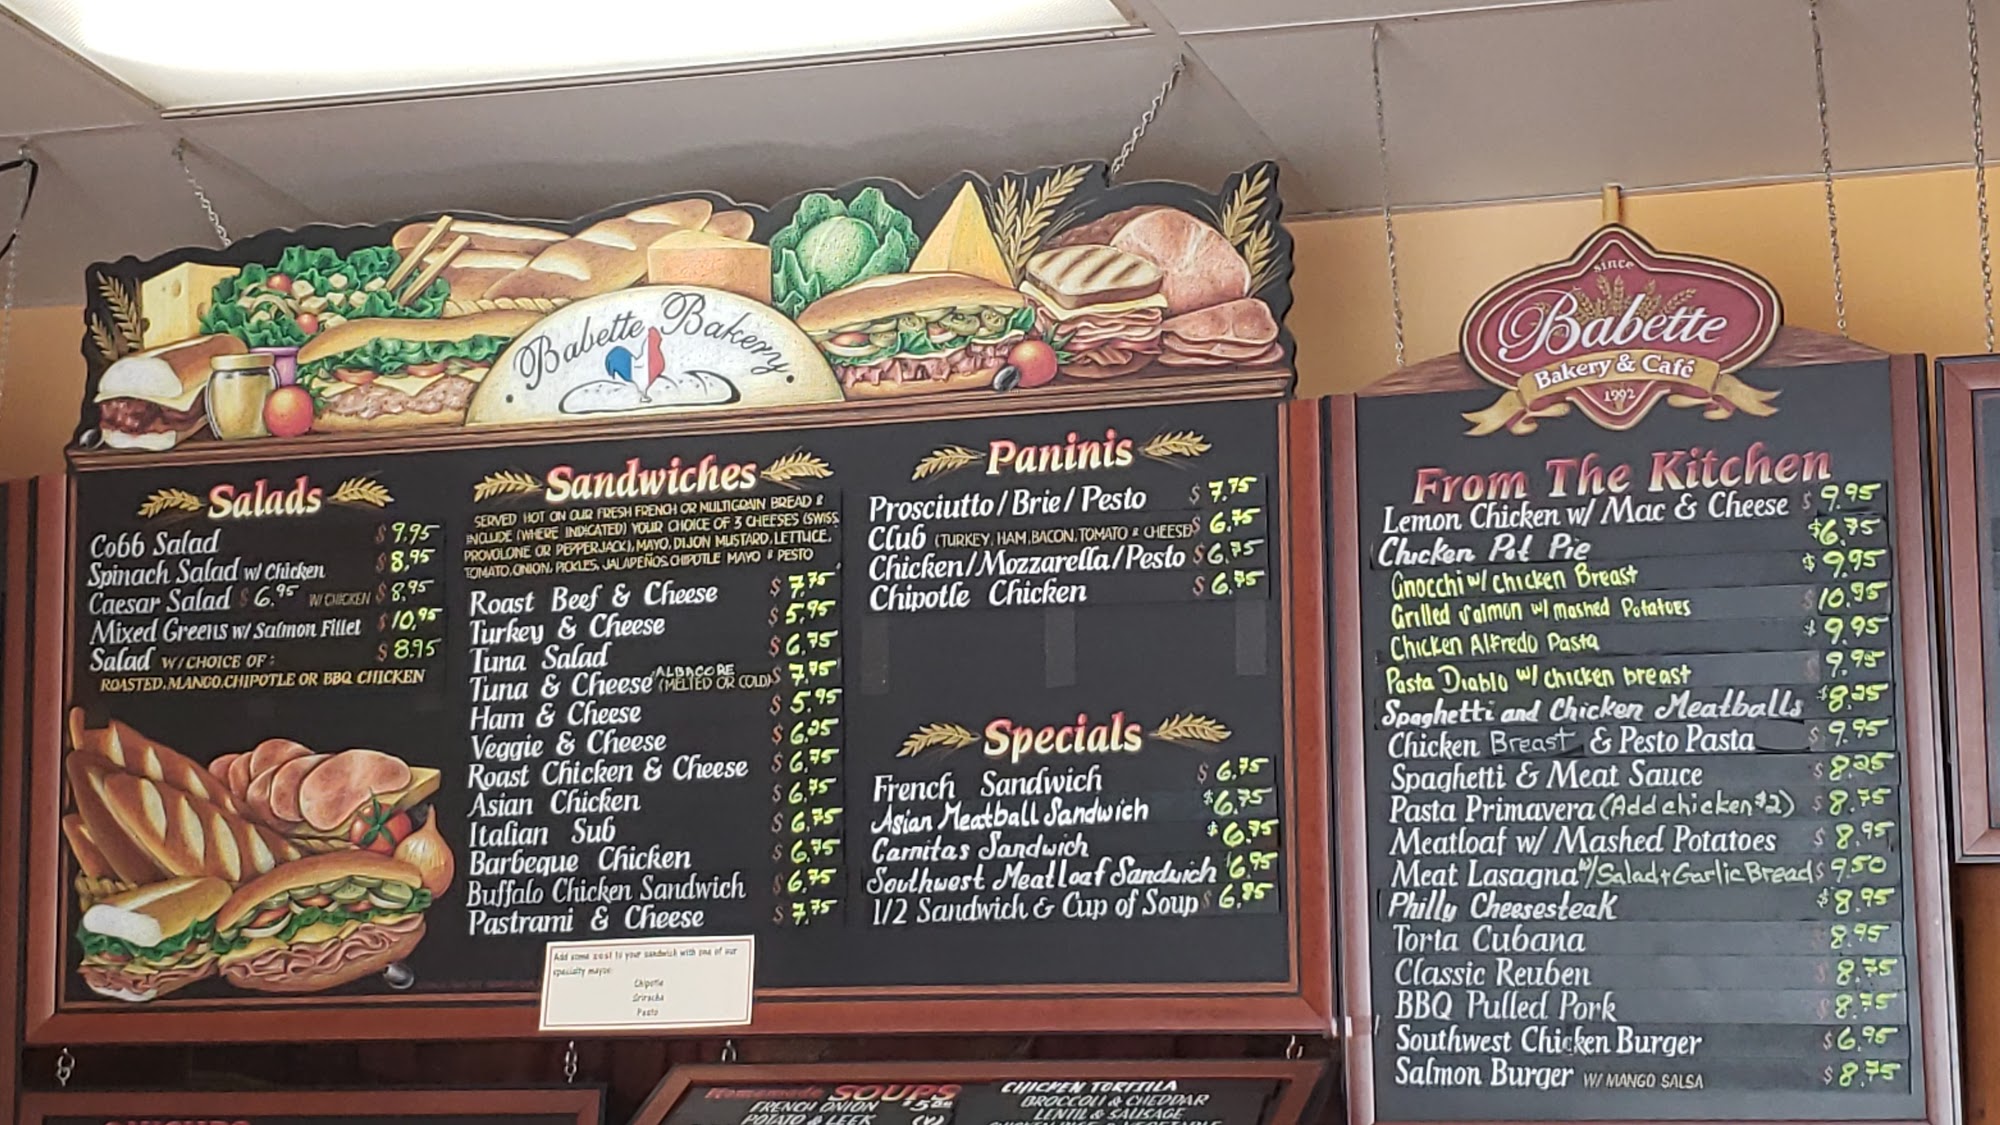 Babette Bakery
Salads
Cobb Salad $9.95
Spinach Salad w/ Chicken $8.95
Caesar Salad $6.95 W/CHICKEN $8.95
Mixed Greens w/ Salmon Fillet $10.95
Salad W/CHOICE OF: $8.95
ROASTED, MANGO, CHIPOTLE OR BBQ CHICKEN
Sandwiches
SERVED HOT ON OUR FRESH FRENCH OR MULTIGRAIN BREAD &
INCLUDE (WHERE INDICATED) YOUR CHOICE OF 3 CHEESES (SWISS,
PROVOLONE OR PEPPERJACK), MAYO, DIJON MUSTARD, LETTUCE,
TOMATO, ONION, PICKLES, JALAPEÑOS, CHIPOTLE MAYO & PESTO
Roast Beef & Cheese $7.75
Turkey & Cheese $5.95
Tuna Salad $6.75
Tuna & Cheese ALBACORE (MELTED OR COLD) $7.95
Ham & Cheese $5.95
Veggie & Cheese $6.25
Roast Chicken & Cheese $6.75
Asian Chicken $6.75
Italian Sub $6.75
Barbeque Chicken $6.75
Buffalo Chicken Sandwich $6.75
Pastrami & Cheese $7.75
Add some zest to your sandwich with one of our
specialty mayos:
Chipotle
Sriracha
Pesto
Paninis
Prosciutto/Brie/Pesto $7.75
Club (TURKEY, HAM, BACON, TOMATO & CHEESE) $6.75
Chicken/Mozzarella/Pesto $6.75
Chipotle Chicken $6.75
Specials
French Sandwich $6.75
Asian Meatball Sandwich $6.75
Carnitas Sandwich $6.75
Southwest Meatloaf Sandwich $6.95
1/2 Sandwich & Cup of Soup $6.85
since
Babette
Bakery & Café
1992
From The Kitchen
Lemon Chicken w/ Mac & Cheese $9.95
Chicken Pot Pie $6.75
Gnocchi w/ chicken Breast $9.95
Grilled Salmon w/ mashed Potatoes $10.95
Chicken Alfredo Pasta $9.95
Pasta Diablo w/ chicken breast 9.95
Spaghetti and Chicken Meatballs $8.25
Chicken Breast & Pesto Pasta $9.95
Spaghetti & Meat Sauce $8.25
Pasta Primavera (Add chicken $2) $8.75
Meatloaf w/ Mashed Potatoes $8.95
Meat Lasagna w/Salad + Garlic Bread $9.50
Philly Cheesesteak $8.95
Torta Cubana 8.95
Classic Reuben $8.75
BBQ Pulled Pork $8.75
Southwest Chicken Burger $6.95
Salmon Burger W/ MANGO SALSA $8.75
Homemade SOUPS
FRENCH ONION
POTATO & LEEK (V)
CHICKEN TORTILLA
BROCCOLI & CHEDDAR
LENTIL & SAUSAGE